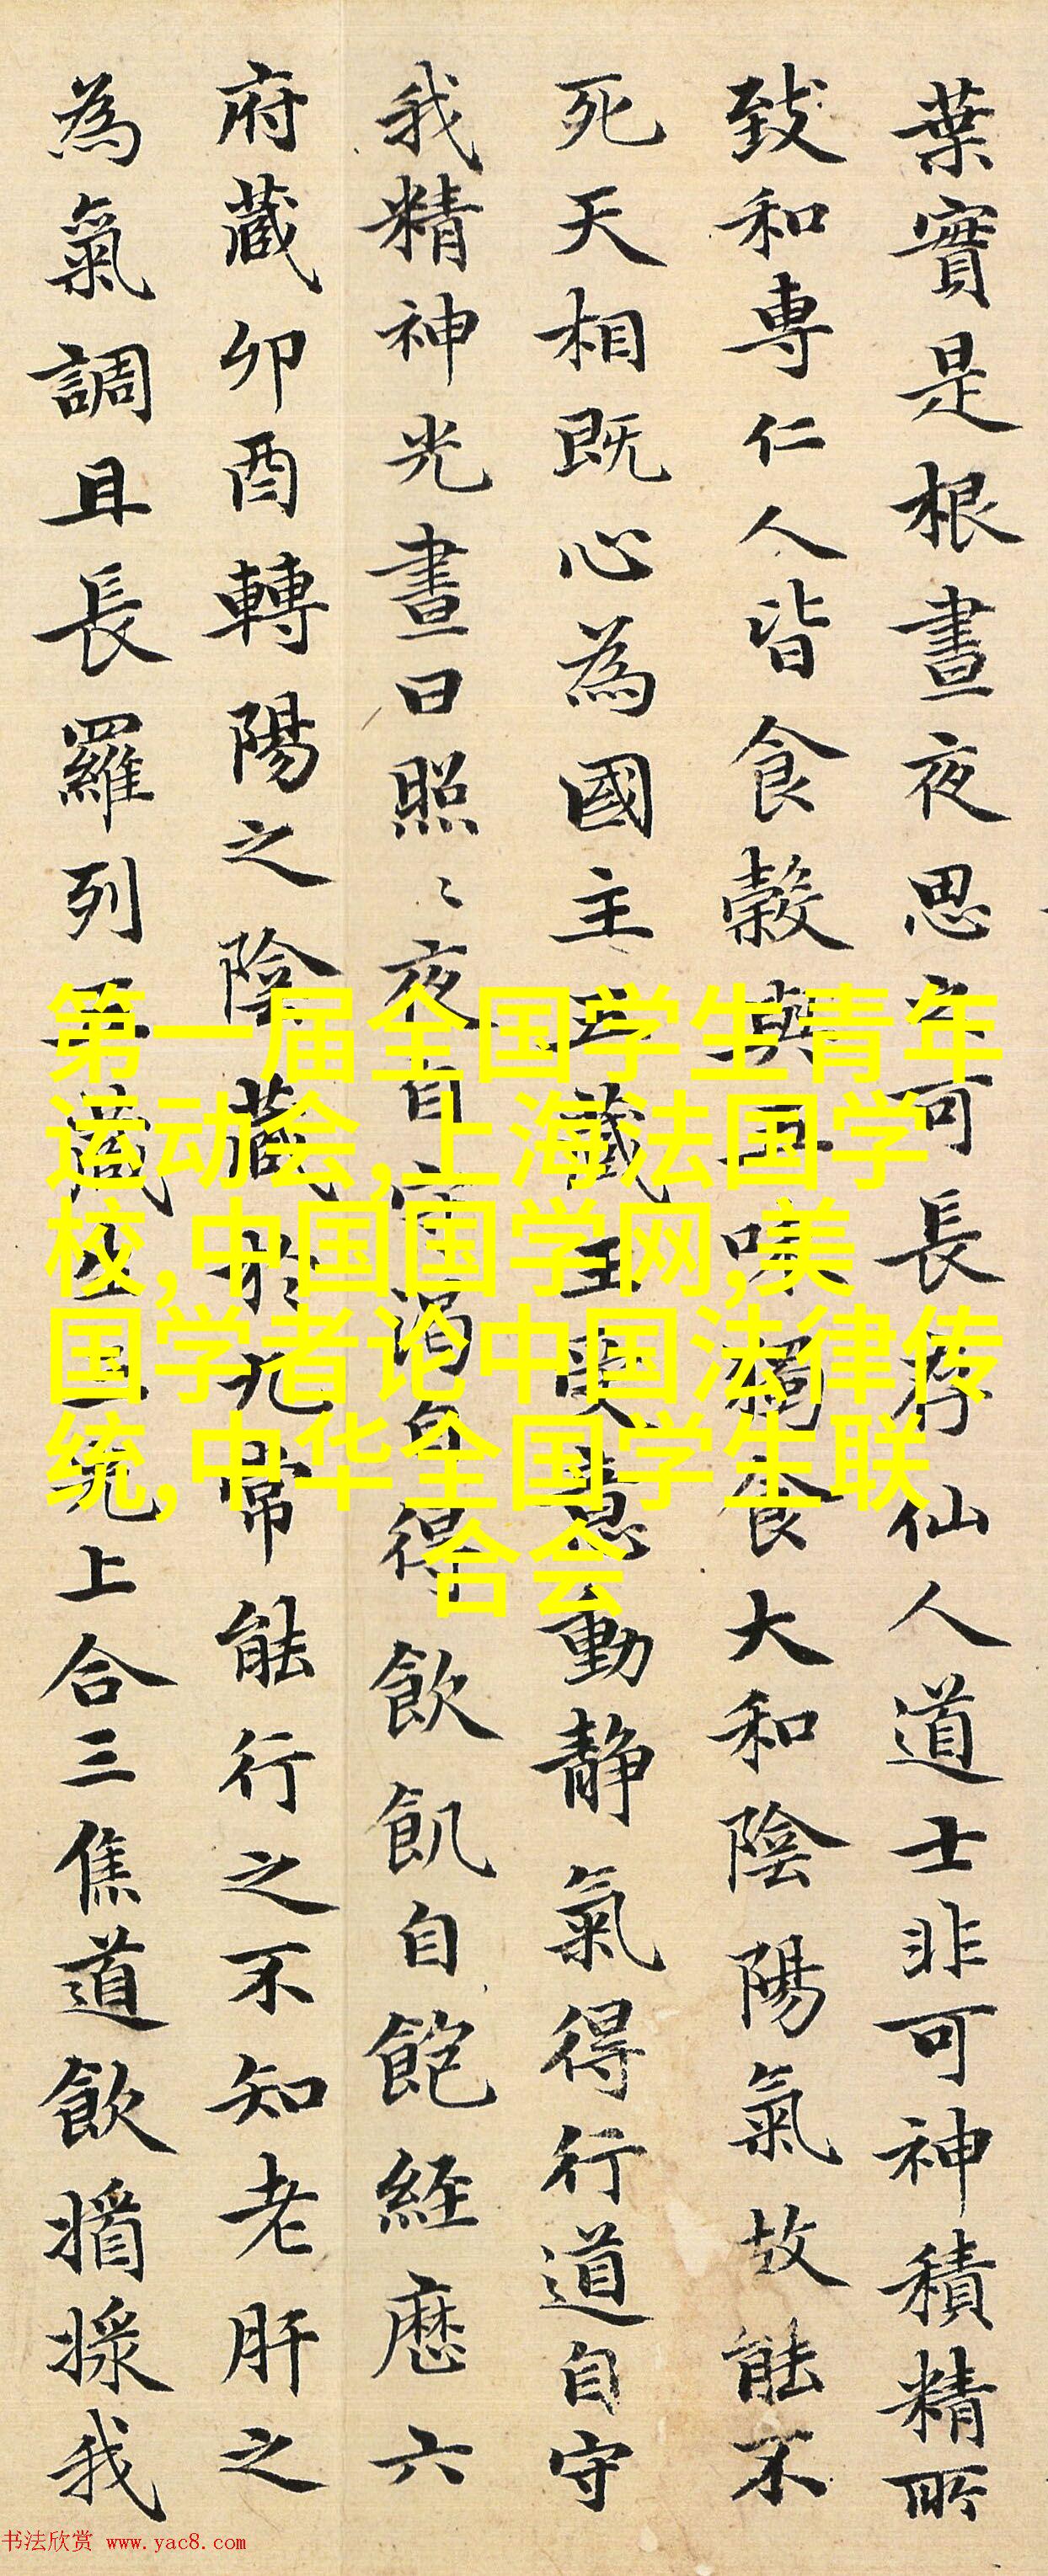 葉實是根晝夜思之可長存仙人道士非可神積精所
致和專仁人皆食穀與五味獨食大和陰陽氣故能不
死天相既心為國主五藏王受意動静氣得行道自守
我精神光晝日照〻夜自守渴自得飲飢自飽經歷六
府藏卯酉轉陽之陰藏於九常能行之不知老肝之
為氣調且長羅列五藏生三光上合三焦道飲漿我
第一届全国学生青年
运动会,上海法国学
校,中国国学网,美
国学者论中国法律传
统,中华全国学生联
合会
书法欣赏 www.yac8.com